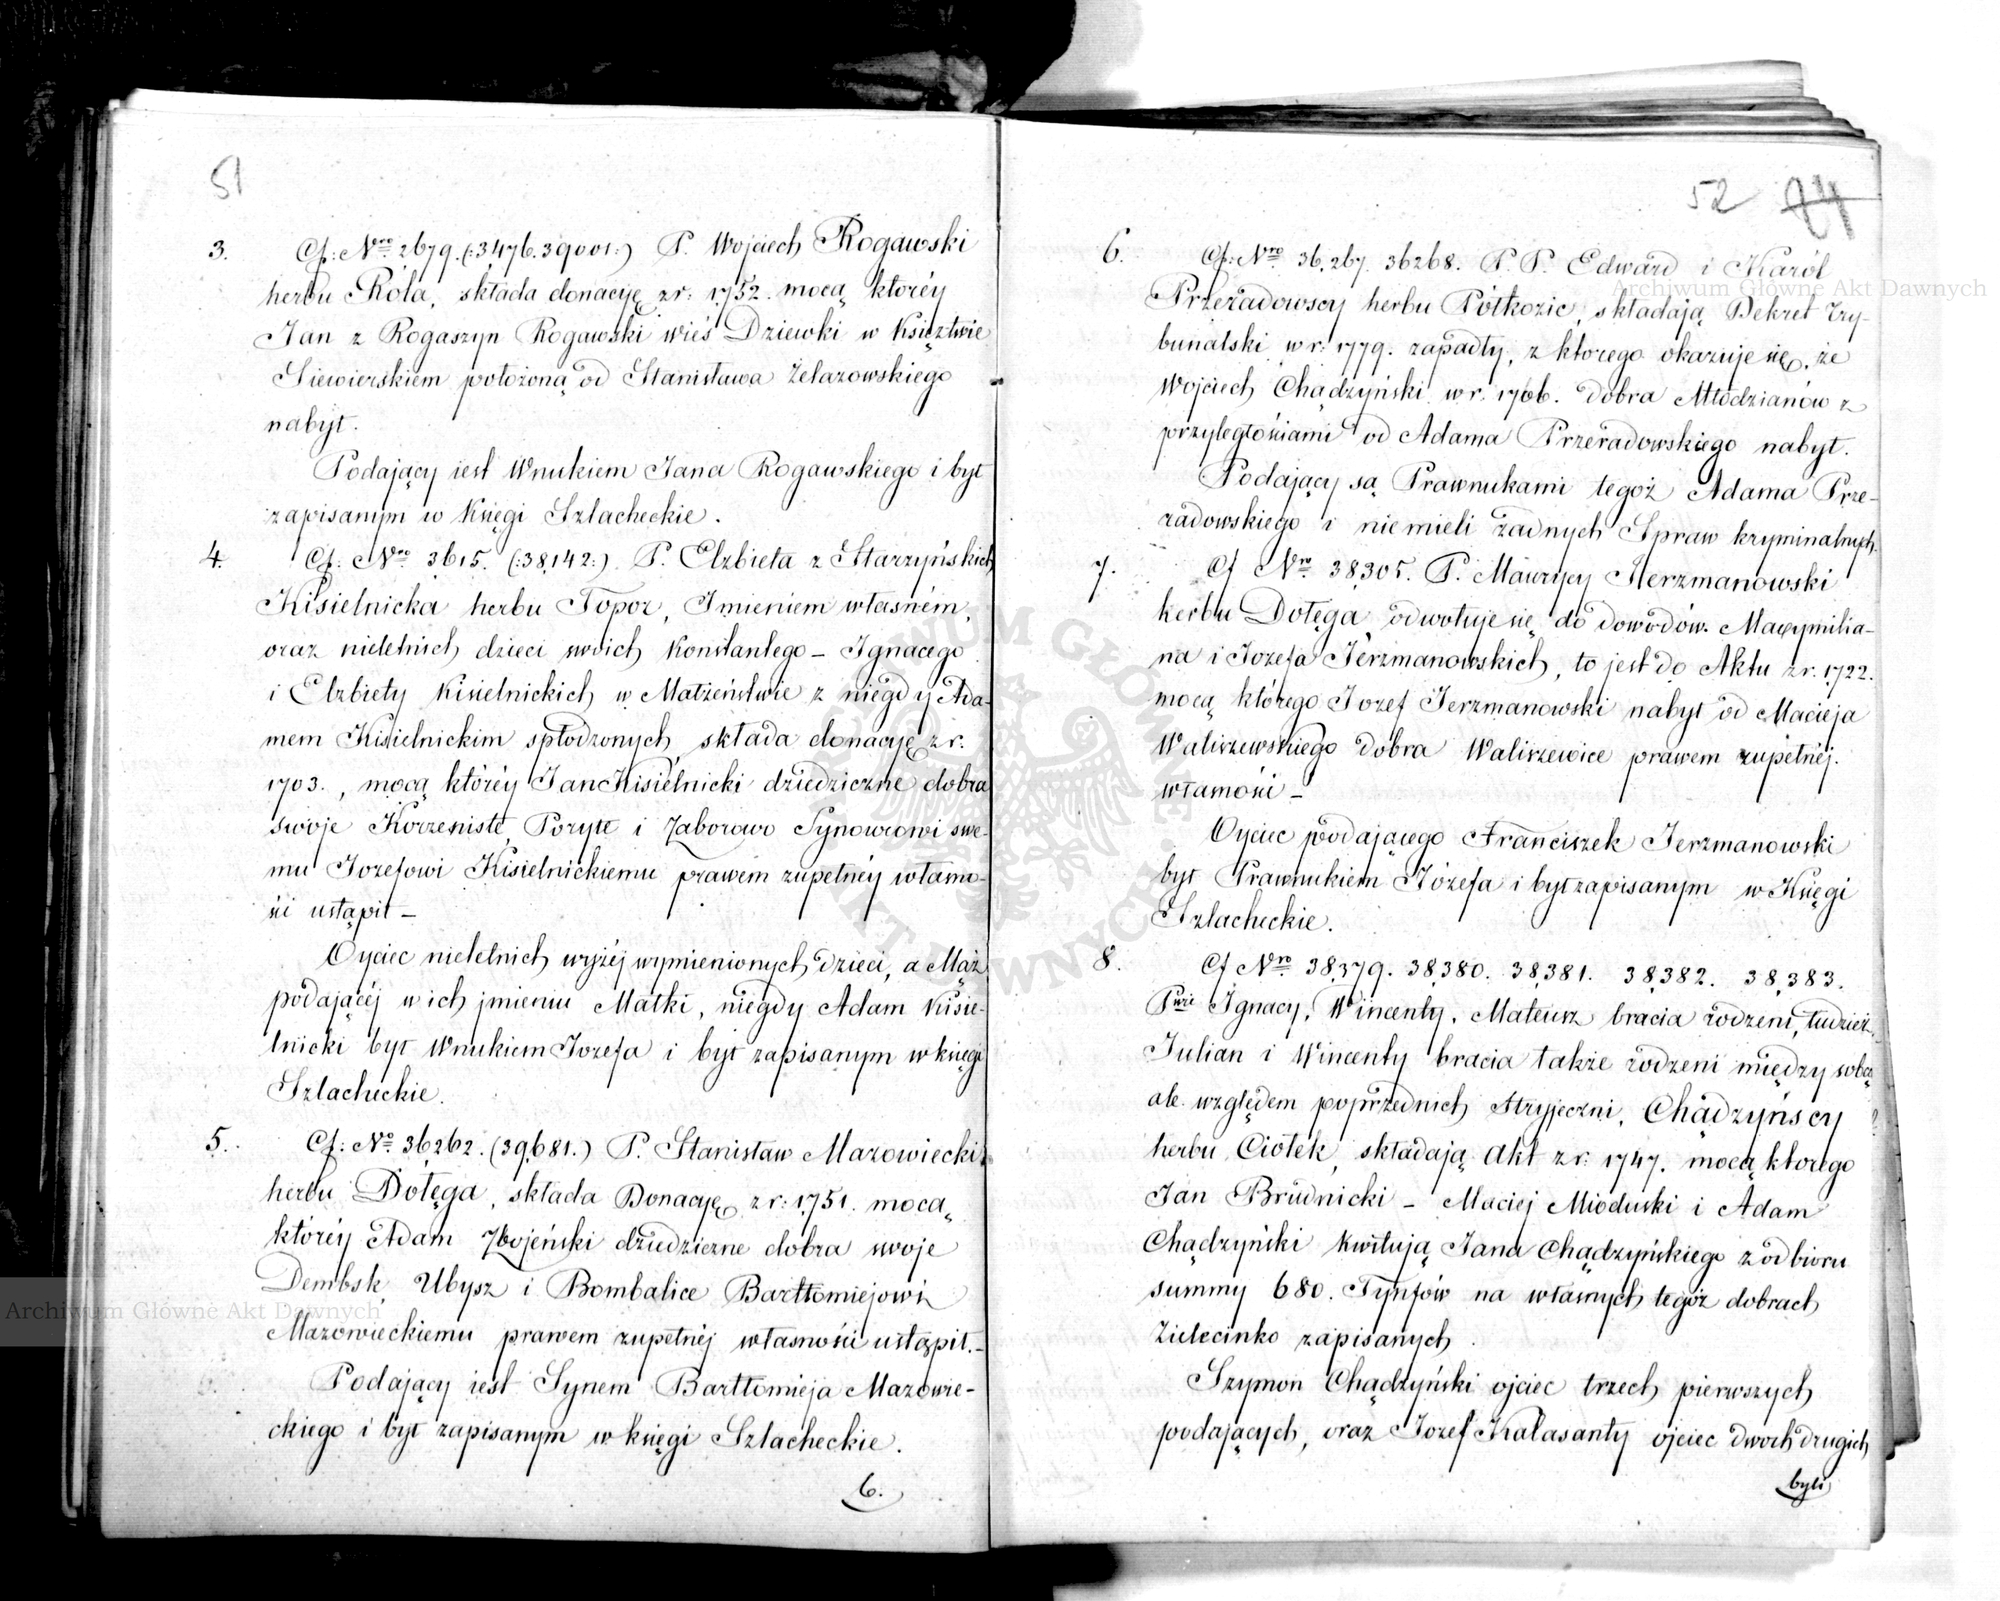 51
3. Cf: Nro 2679. (:3476.39001:) P. Wojciech Rogawski
herbu Rola, składa donacyję z r: 1752. mocą któréy
Jan z Rogaszyn Rogawski wieś Dziewki w Xięztwie
Siewierskiem położoną od Stanisława Żelazowskiego
nabył.
Podający iest Wnukiem Jana Rogawskiego i był
zapisanym w Księgi Szlacheckie.
4. Cf: Nro 3615. (:38,142:) P. Elzbieta z Starzyńskich
Kisielnicka herbu Topor, Imieniem własném,
oraz nieletnich dzieci swoich Konstantego – Ignacego
i Elzbiety Kisielnickich w Małżeństwie z niegdy Ada-
mem Kisielnickim spłodzonych, składa donacyję z r:
1703., mocą któréy Jan Kisielnicki dziedziczne dobra
swoje Korzeniste, Poryte i Zaborowo Synowcowi swe-
mu Jozefowi Kisielnickiemu prawem zupełnéy własno-
ści ustąpił –
Oyciec nieletnich wyżéj wymienionych dzieci, a Mąż
podającéj w ich jmieniu Matki, niegdy Adam Kisie-
lnicki był Wnukiem Jozefa i był zapisanym w księgi
Szlacheckie.
5. Cf: No 36,262. (39,681.) P. Stanisław Mazowiecki,
herbu Dołęga, składa Donacyję z r: 1751. mocą
któréy Adam Zbojeński dziedziczne dobra swoje
Dembsk, Ubysz i Bombalice Bartłomiejowi
Mazowieckiemu prawem zupełnéj własności ustąpił. –
Podający iest Synem Bartłomieja Mazowie-
ckiego i był zapisanym w księgi Szlacheckie.
6.
52 84
6. Cf: Nro 36,267. 36268. P. P. Edward i Karól
Przeradowscy herbu Półkozic, składają Dekret Try-
bunalski w r: 1779. zapadły, z ktorego okazuje się, że
Wojciech Chądzyński w r: 1766. dobra Młodzianów z
przyległościami od Adama Przeradowskiego nabył.
Podający są Prawnukami tegoż Adama Prze-
radowskiego i niemieli żadnych Spraw kryminalnych.
7. Cf Nro 38,305. P. Maurycy Jerzmanowski
herbu Dołęga, odwołuje się do dowodów Maxymilia-
na i Jozefa Jerzmanowskich, to jest do Aktu z r. 1722.
mocą którego Jozef Jerzmanowski nabył od Macieja
Waliszewskiego dobra Waliszewice prawem zupełnéj
własności –
Oyciec podającego Franciszek Jerzmanowski
był Prawnukiem Józefa i był zapisanym w Księgi
Szlacheckie.
8. Cf Nro 38,379. 38,380. 38,381. 38,382. 38,383.
Pwie Ignacy, Wincenty, Mateusz bracia rodzeni, tudzież
Julian i Wincenty bracia także rodzeni między sobą
ale względem poprzednich Stryjeczni, Chądzyńscy
herbu Ciołek, składają Akt z r: 1747. mocą ktorego
Jan Brudnicki – Maciej Mioduski i Adam
Chądzyński kwitują Jana Chądzyńskiego z odbioru
summy 680. Tynfów na własnych tegoż dobrach
Zielecinko zapisanych.
Szymon Chądzyński ojciec trzech pierwszych
podających, oraz Jozef Kalasanty ojciec dwoch drugich
byli
Archiwum Główne Akt Dawnych
Archiwum Główne Akt Dawnych
ARCHIWUM GŁÓWNE AKT DAWNYCH